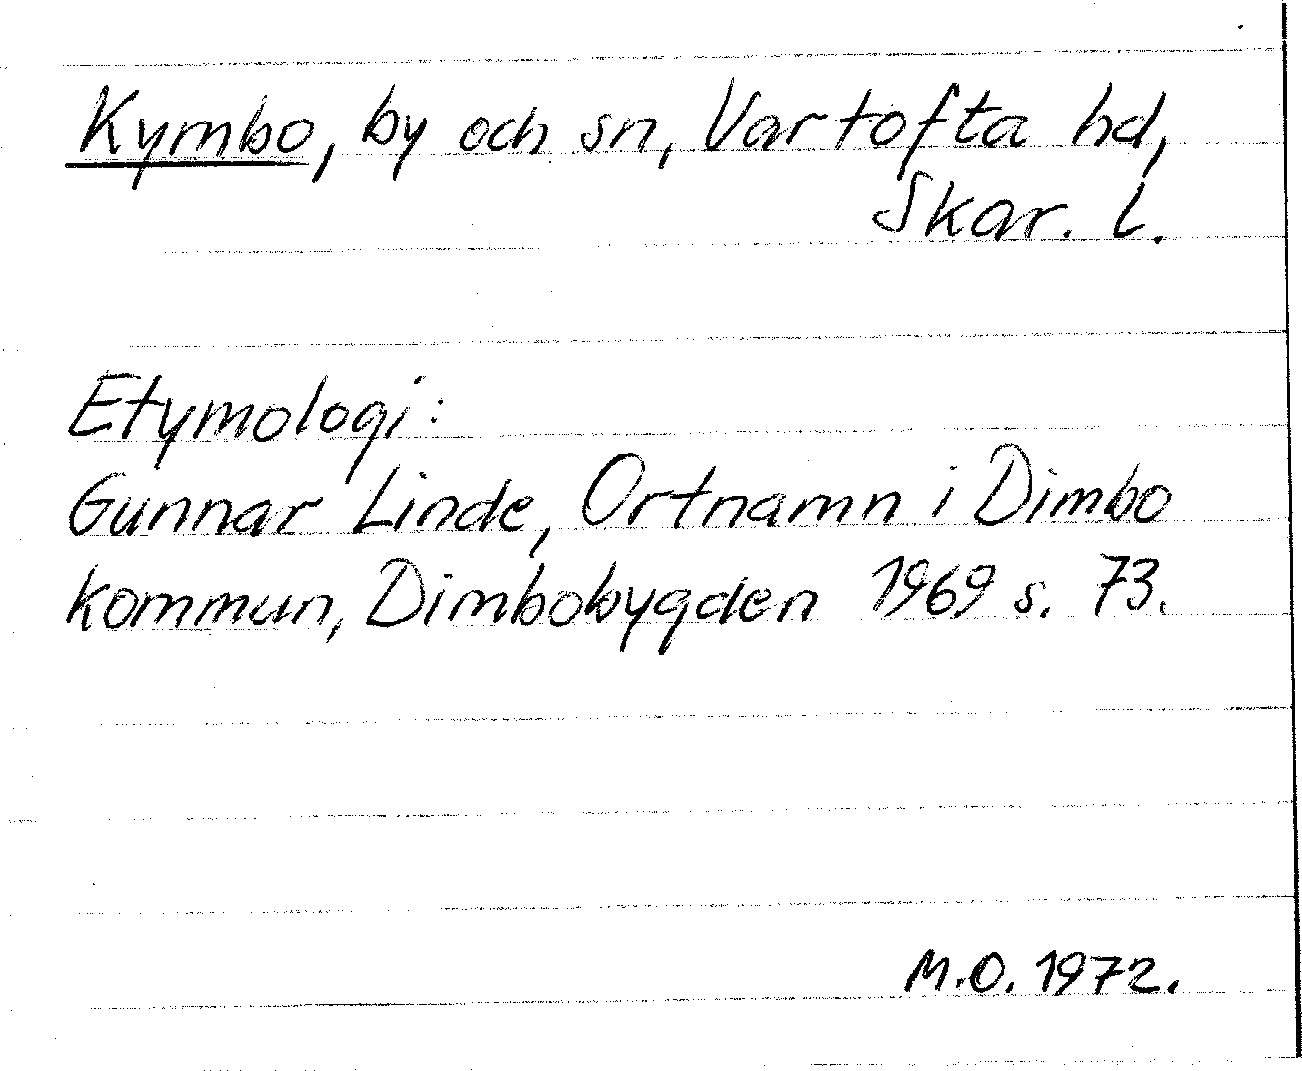 Kymbo, by och sn, Vartofta hd,
Skar. l.
Etymologi:
Gunnar Linde, Ortnamn i Dimbo
kommun, Dimbobygden 1969 s. 73.
M.O. 1972.